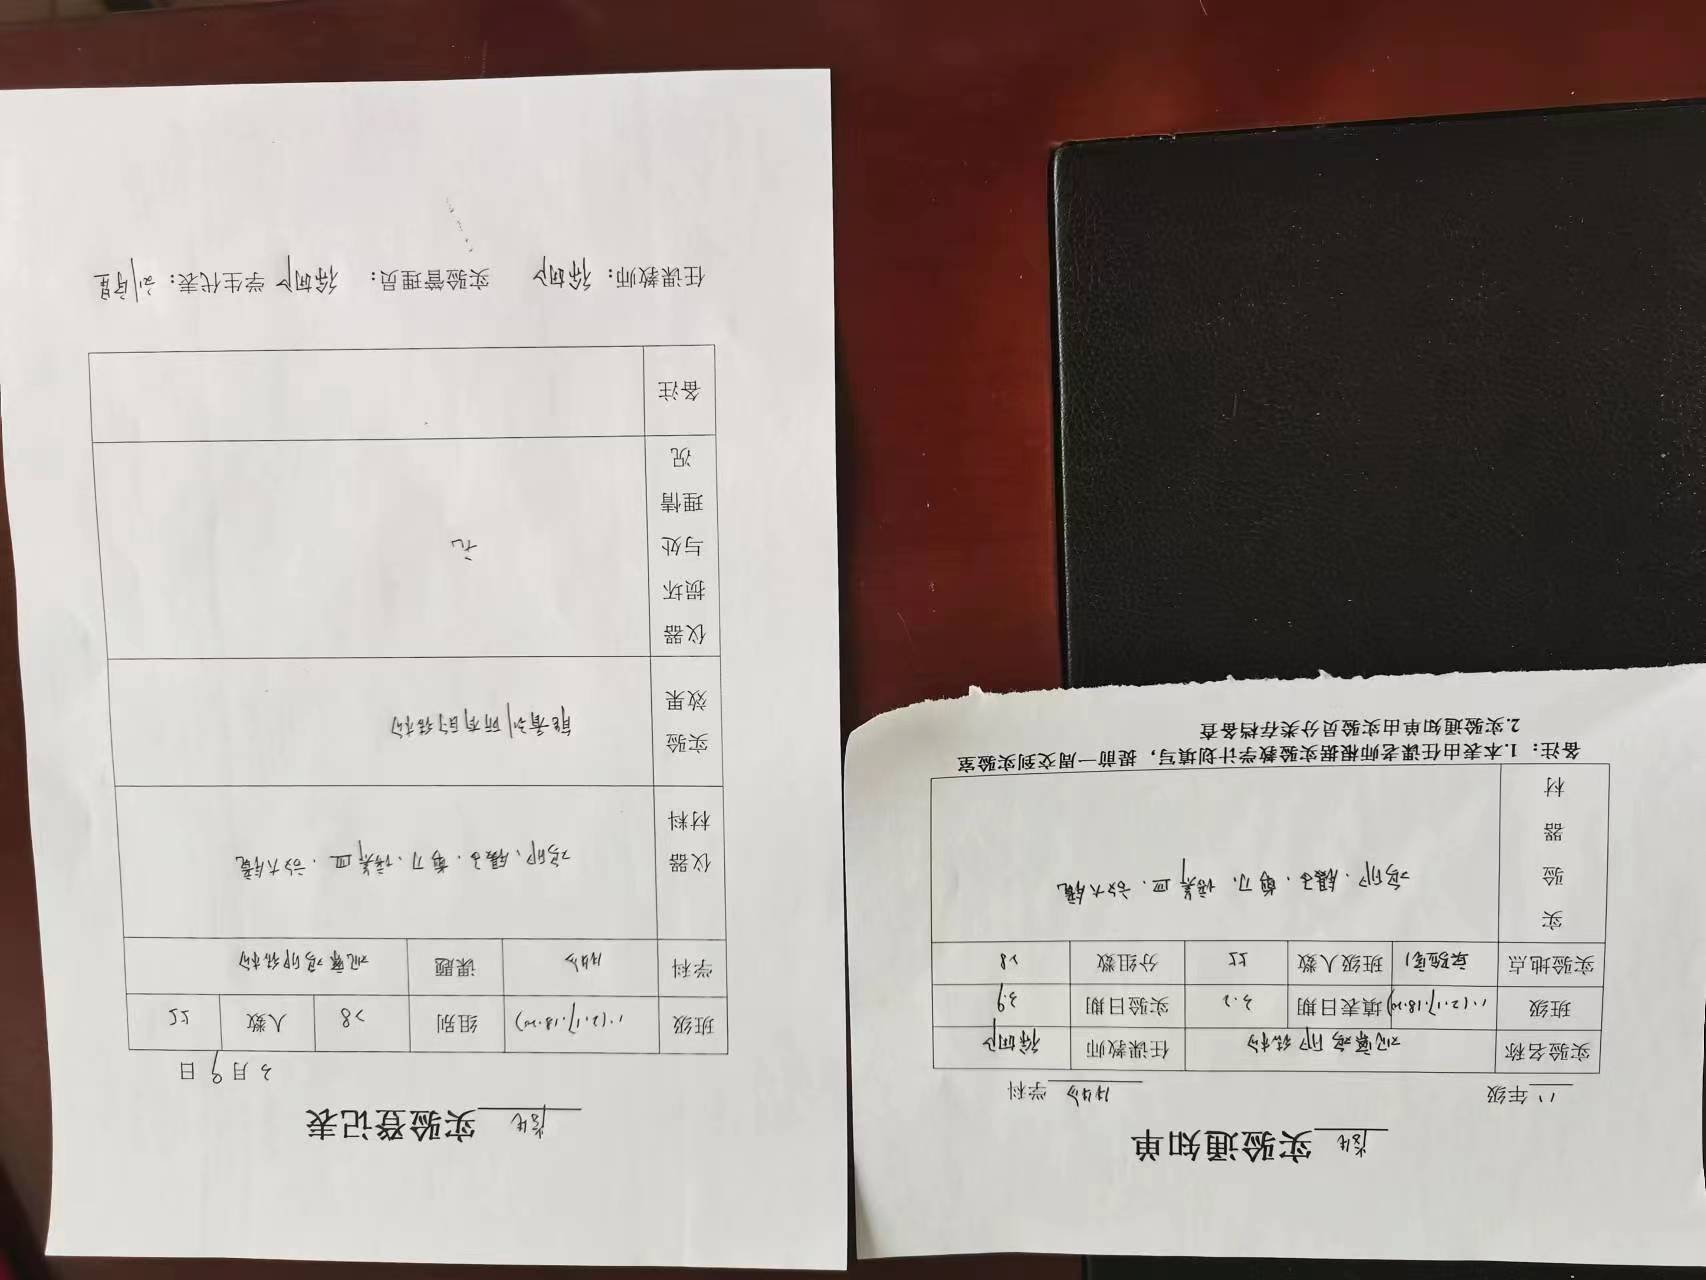 实验通知单
八年级 生物学科
实验名称 观察鸡卵结构 任课教师
班级 填表日期 3.2 实验日期 3.9
实验地点 实验室1 班级人数 55 分组数 28
实验器材 鸡卵、镊子、剪刀、培养皿、放大镜
备注：1.本表由任课老师根据实验教学计划填写，提前一周交到实验室
2.实验通知单由实验员分类存档备查
实验登记表
3月9日
班级 组别 28 人数 55
学科 生物 课题 观察鸡卵结构
仪器材料 鸡卵、镊子、剪刀、培养皿、放大镜
实验效果 能看到所有的结构
仪器损坏与处理情况 无
备注
任课教师： 实验管理员： 学生代表：